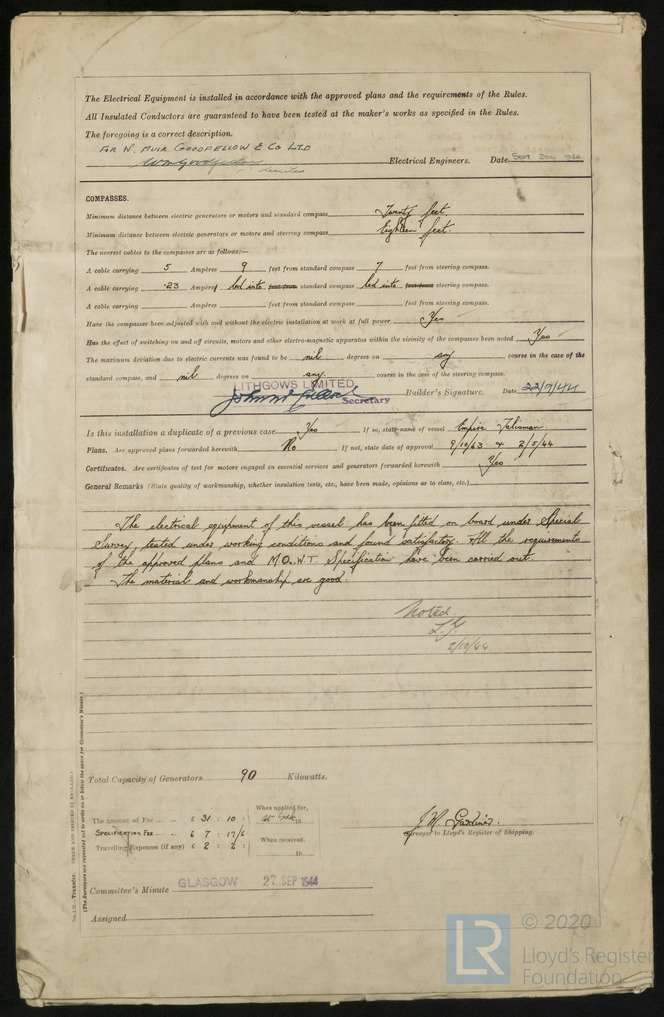 The Electrical Equipment is installed in accordance with the approved plans and the requirements of the Rules.
All Insulated Conductors are guaranteed to have been tested at the maker's works as specified in the Rules.
The foregoing is a correct description.
FOR W. MUIR GOODFELLOW & CO LTD
Electrical Engineers. Date Sept. 20th, 1944
COMPASSES.
Minimum distance between electric generators or motors and standard compass Twenty feet.
Minimum distance between electric generators or motors and steering compass Eighteen feet.
The nearest cables to the compasses are as follows:—
A cable carrying 5 Ampères 9 feet from standard compass 7 feet from steering compass.
A cable carrying .23 Ampères led into feet from standard compass led into feet from steering compass.
A cable carrying Ampères feet from standard compass feet from steering compass.
Have the compasses been adjusted with and without the electric installation at work at full power Yes
Has the effect of switching on and off circuits, motors and other electro-magnetic apparatus within the vicinity of the compasses been noted Yes
The maximum deviation due to electric currents was found to be nil degrees on any course in the case of the
standard compass, and nil degrees on any course in the case of the steering compass.
LITHGOWS LIMITED.
Secretary Builder's Signature. Date 22/9/44
Is this installation a duplicate of a previous case Yes If so, state name of vessel Empire Talisman
Plans. Are approved plans forwarded herewith No If not, state date of approval 9/10/43 & 2/5/44
Certificates. Are certificates of test for motors engaged on essential services and generators forwarded herewith Yes
General Remarks (State quality of workmanship, whether insulation tests, etc., have been made, opinions as to class, etc.)
The electrical equipment of this vessel has been fitted on board under Special
Survey, tested under working conditions and found satisfactory. All the requirements
of the approved plans and M.O.W.T. Specification have been carried out.
The material and workmanship are good.
Noted.
2/10/44
Total Capacity of Generators 90 Kilowatts.
The amount of Fee £ 31 : 10 :
When applied for,
19
Specification Fee £ 7 : 17/6
When received,
Travelling Expenses (if any) £ 2 : 2 :
19
Surveyor to Lloyd's Register of Shipping.
Committee's Minute GLASGOW 27 SEP 1944
Assigned
Transfer. (MADE AND PRINTED IN ENGLAND.)
(The Surveyors are requested not to write on or below the space for Committee's Minute.)
LR
© 2020
Lloyd's Register
Foundation